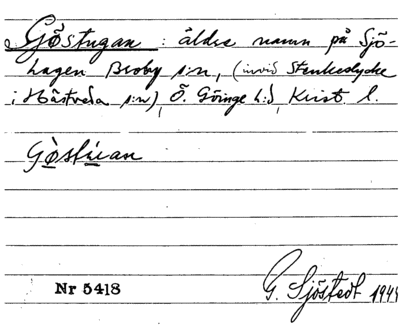 Gǒstugan : äldre namn på Sjö-
hagen Broby s:n, (invid Stenkeslycke
i Hästveda s:n), Ö. Göinge h:d, Krist. l.
Gòstúan
Nr 5418
G. Sjöstedt 1944